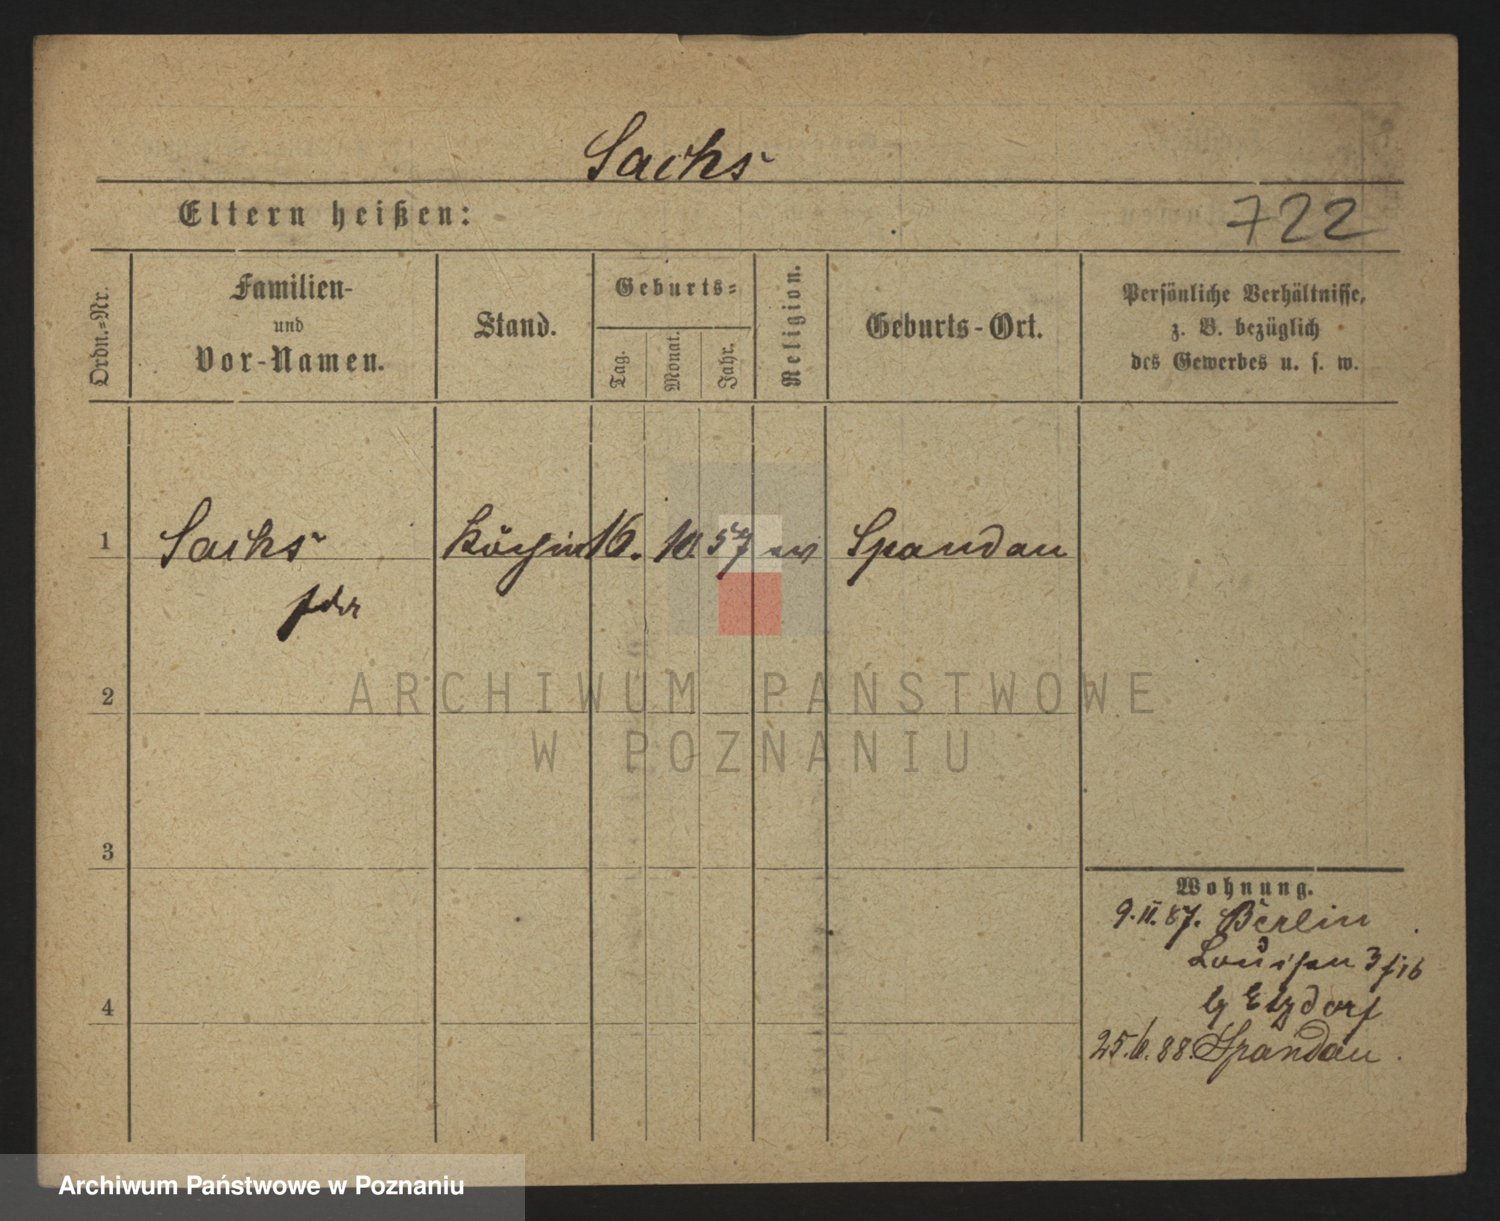 Sachs
Eltern heißen:
722
Ordn.=Nr.
Familien-
und
Vor-Namen.
Stand.
Geburts=
Tag.
Monat.
Jahr.
Religion.
Geburts-Ort.
Persönliche Verhältnisse,
z. B. bezüglich
des Gewerbes u. s. w.
1 Sachs Köchin 16. 10. 57 ev Spandau
2
3
4
Wohnung.
9.II.87. Berlin
Louisen
Etzdorf
25.6.88. Spandau.
ARCHIWUM PAŃSTWOWE
W POZNANIU
Archiwum Państwowe w Poznaniu